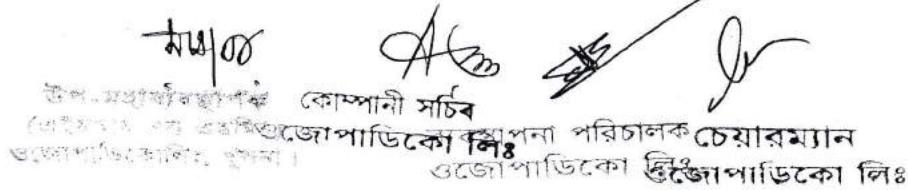 উপ-মহাব্যবস্থাপক কোম্পানী সচিব
ব্যবস্থাপনা পরিচালক চেয়ারম্যান
ওজোপাডিকো লিঃ
ওজোপাডিকোলিঃ, খুলনা।
ওজোপাডিকো লিঃ ওজোপাডিকো লিঃ